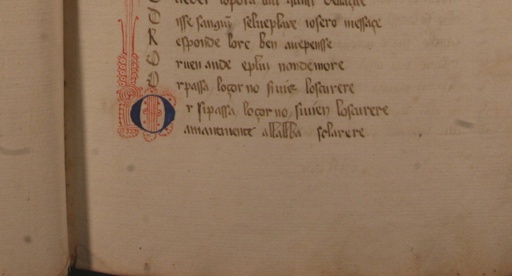 D isse sangui⁹ selueplaxe iosero messaçe
R esponde lore ben auepensse
O ruen ande eplui nondemore
O r passa loçor no siuis loscurere
O r sipassa loçor no siuien loscurere
amantinente allalba sclarere